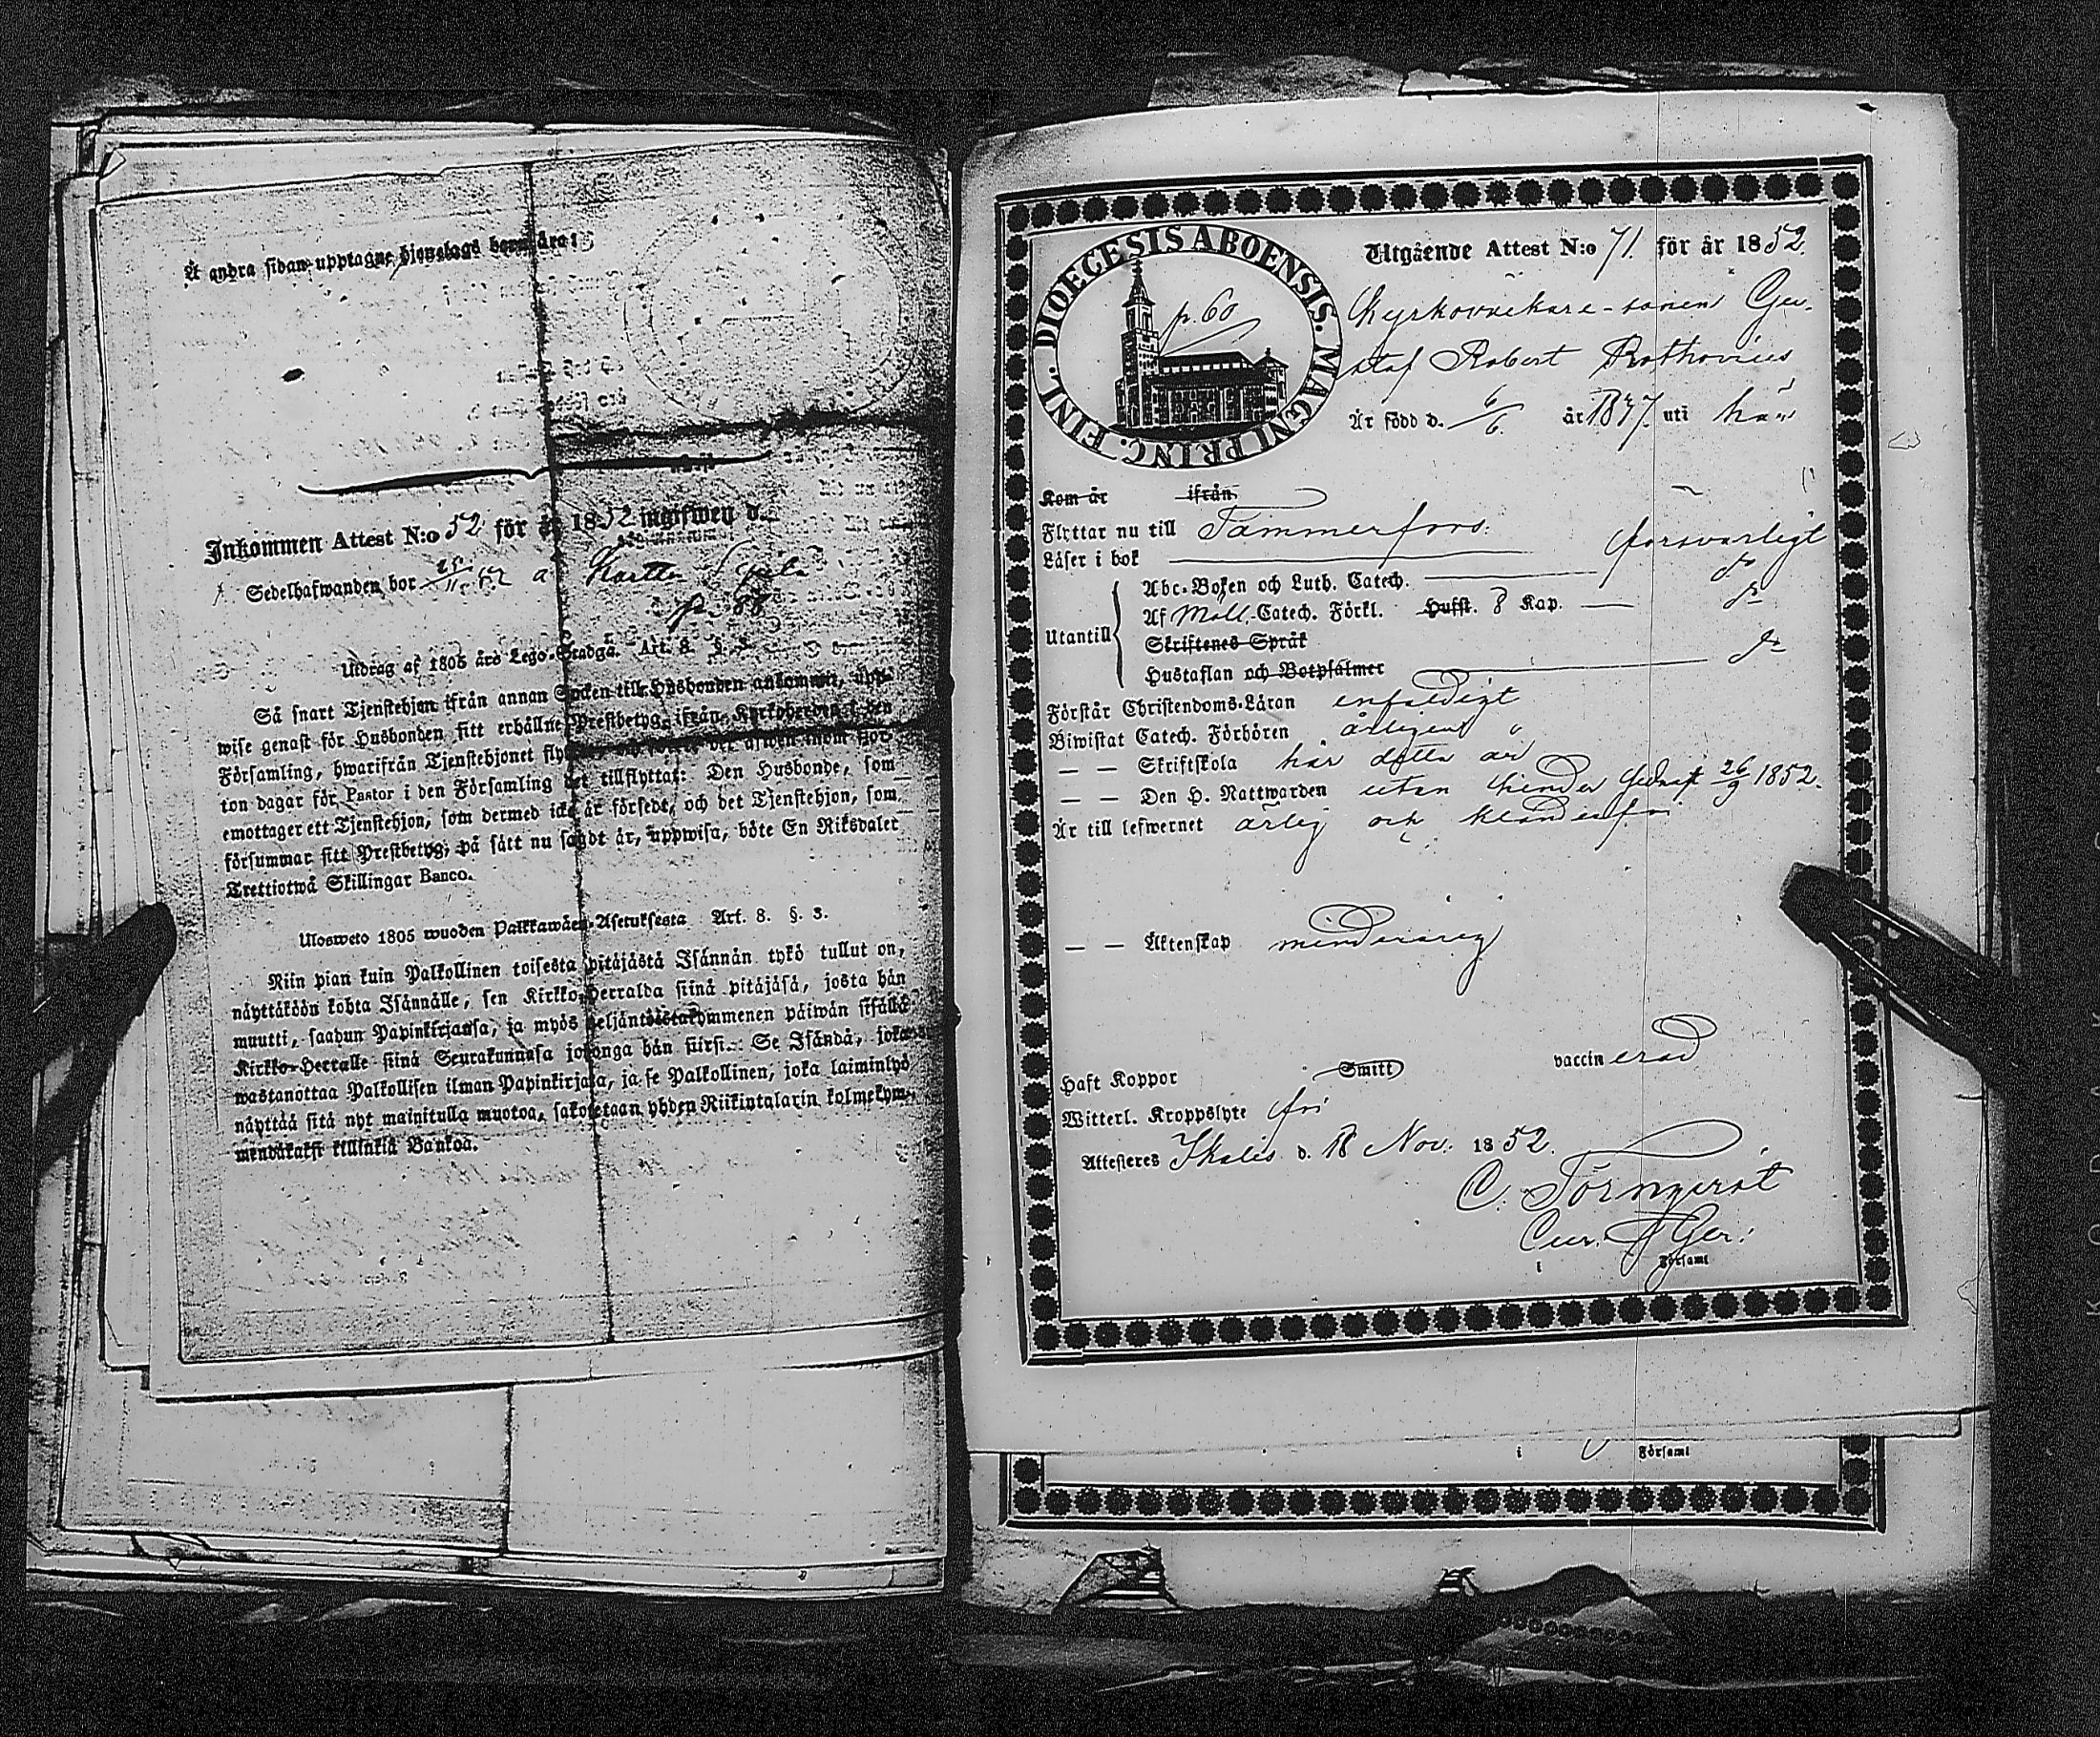 Å andra sidan upptagne hjonelags barn äro:
Inkommen Attest N:o 52 för år 1852 ingifwen d.
Sedelhafwanden bor
p. 88
Utdrag af 1805 års Lego-Stadga. Art. 8. §.
Så snart Tjenstehjon ifrån annan Socken till Husbonden ankommit, upp-
wise genast för Husbonden sitt erhållne Prestbetyg ifrån Kyrkoherden i den
Församling, hwarifrån Tjenstehjonet
ton dagar för Pastor i den Församling det tillflyttat: Den Husbonde, som
emottager ett Tjenstehjon, som dermed icke är försedt, och det Tjenstehjon, som
försummar sitt Prestbetyg, på sätt nu sagdt är, uppwisa, böte En Riksdaler
Trettiotwå Skillingar Banco.
Ulosweto 1805 wuoden Palkkawäen-Asetuksesta Art. 8. §. 3.
Niin pian kuin Palkollinen toisesta pitäjästä Isännän tykö tullut on,
näyttäköön kohta Isännälle, sen Kirkko-Herralda siinä pitäjäsä, josta hän
muutti, saadun Papinkirjansa, ja myös neljäntoistakymmenen päiwän sisällä
Kirkko-Herralle siinä Seurakunnasa johonga hän siirsi. Se Isändä, joka
wastanottaa Palkollisen ilman Papinkirjata, ja se Palkollinen, joka laiminlyö
näyttää sitä nyt mainitulla muotoa, sakotetaan yhden Riikintalarin kolmekym-
mendäkaksi killinkiä Bankoa.
DIOECESIS ABOENSIS. MAGNI PRINC. FINL.
p. 60
Utgående Attest N:o 71. för år 1852.
Kyrkoväktare-sonen Gu-
staf Robert Rothovius
Är född d. 6/6. år 1837. uti här
Kom år ifrån
Flyttar nu till Tammerfors.
Läser i bok försvarligt
Abc-Boken och Luth. Catech. do
Utantill Af Möll. Catech. Förkl. Hufst. 8 Kap. do
Skriftenes Språk
Hustaflan och Botpsalmer do
Förstår Christendoms-Läran enfaldigt
Biwistat Catech. Förhören årligen
— — Skriftskola här detta år
— — Den H. Nattwarden utan hinder 26/9 1852.
Är till lefwernet ärlig och klanderfri
— — Äktenskap minderårig
Haft Koppor Smitt vaccinerad
Witterl. Kroppslyte fri
Attesteres Ikalis d. 18 Nov. 1852.
C. Törnqvist
i Församl
i Församl